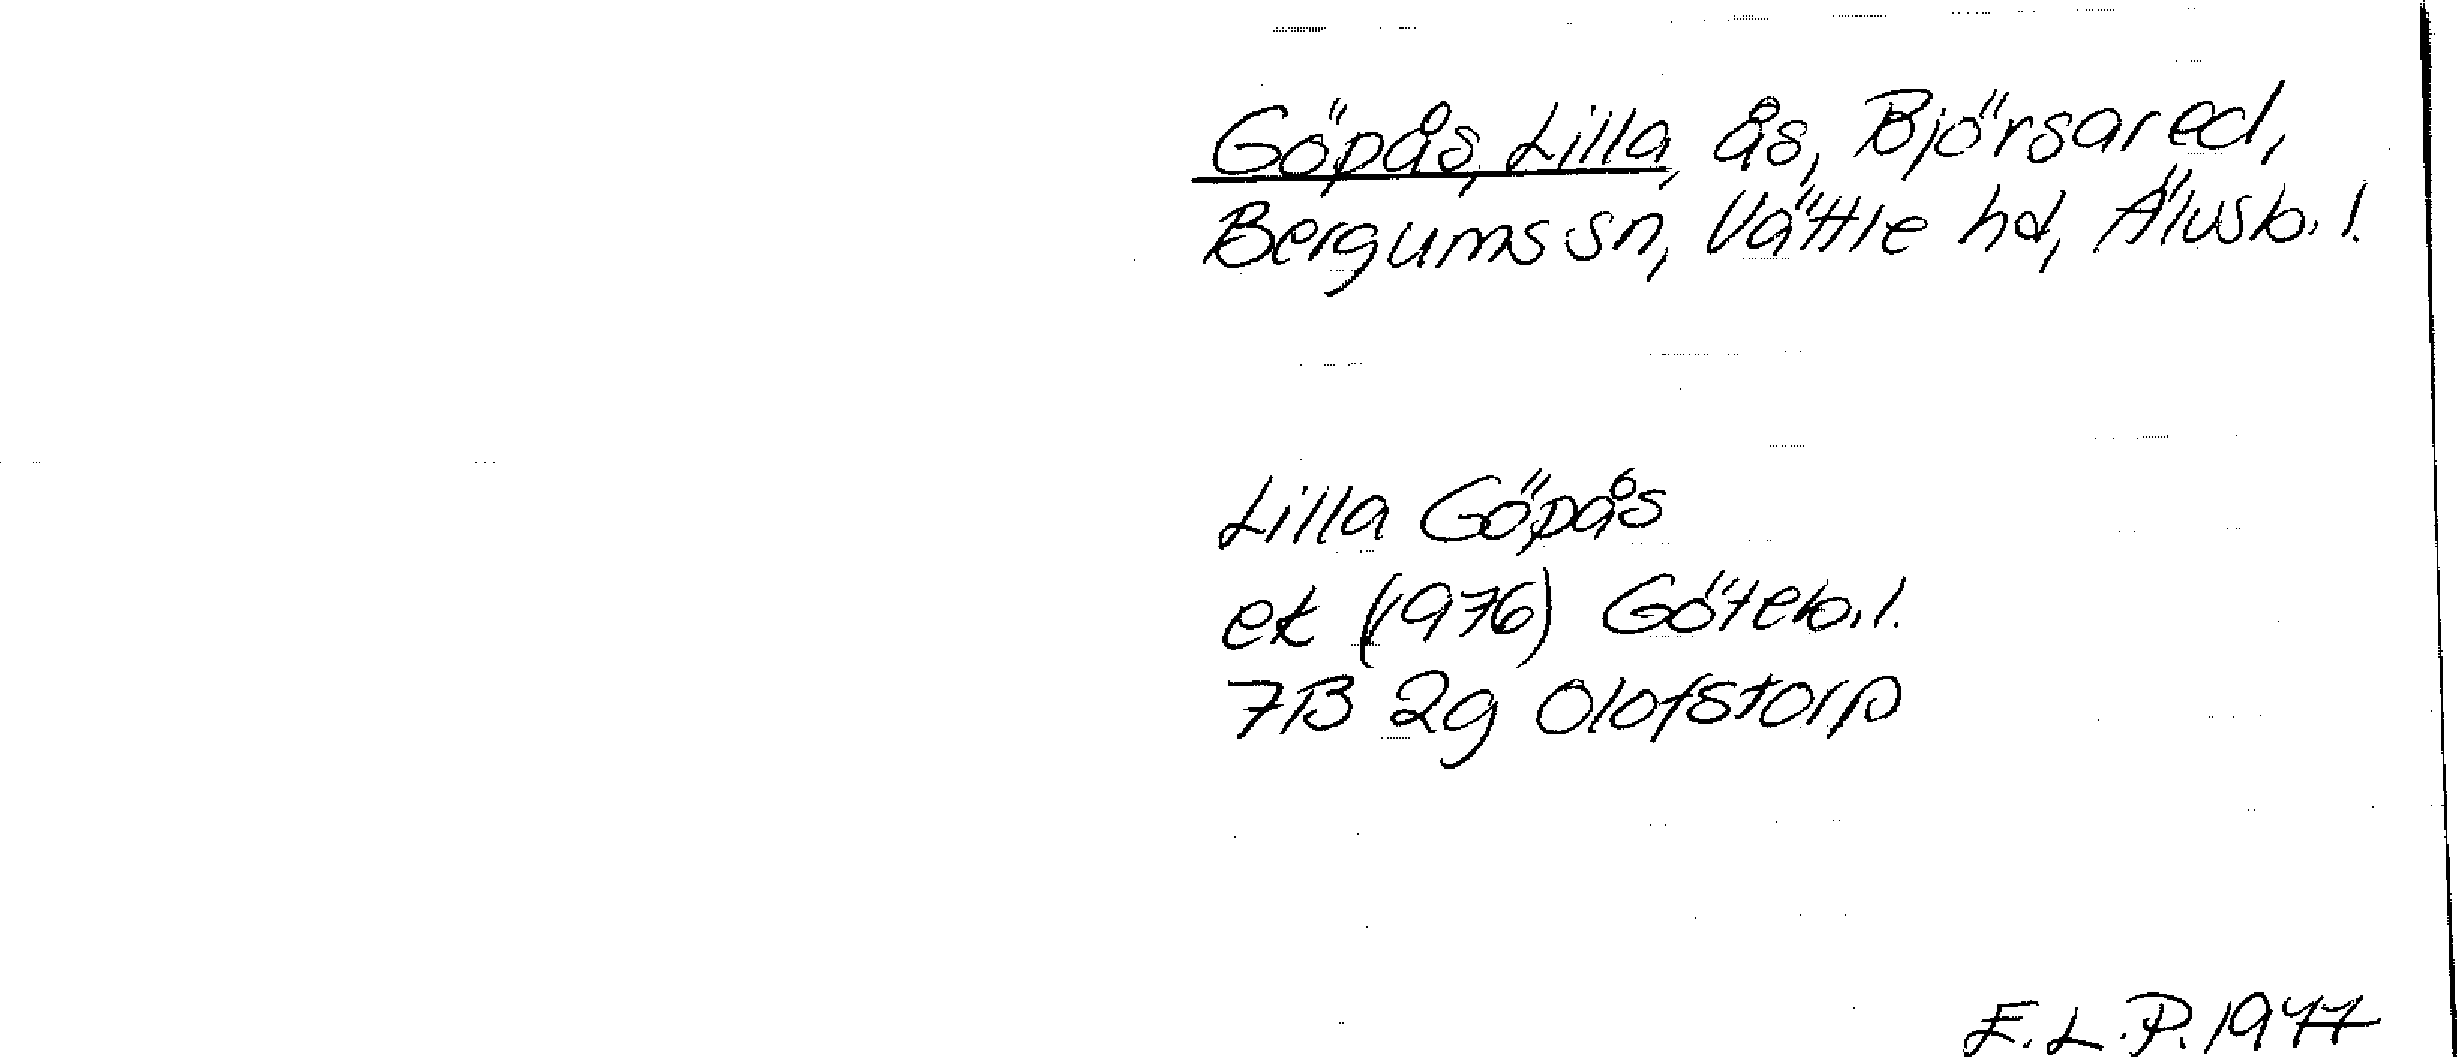 Göpås, Lilla, ås, Björsared,
Bergums sn, Vättle hd, Älvsb. l.
Lilla Göpås
ek (1976) Göteb. l.
7B 2g Olofstorp
E. L. P. 1977